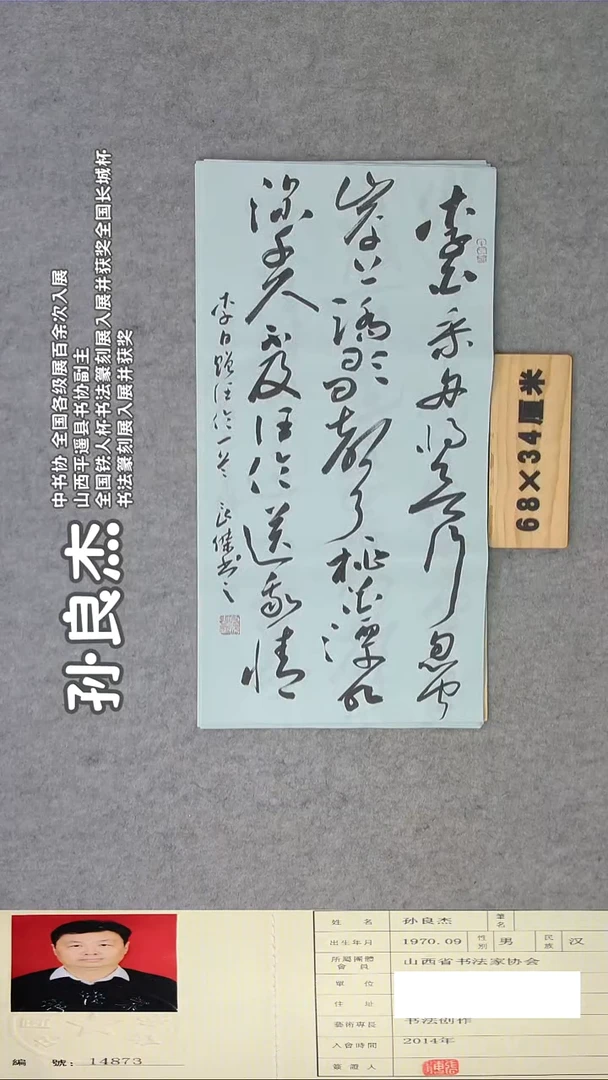 孙良杰
中书协 全国各级展百余次入展
山西平遥县书协副主
全国铁人杯书法篆刻展入展并获奖全国长城杯
书法篆刻展入展并获奖
李白乘舟将欲行忽闻
岸上踏歌声桃花潭水
深千尺不及汪伦送我情
李白赠汪伦一首 良杰书之
68×34厘米
姓 名 孙良杰 筆名
出生年月 1970.09 性別 男 民族 汉
所屬團體會員 山西省书法家协会
單 位
住 址
藝術專長 书法创作
入會時間 2014年
簽證人
編 號: 14873